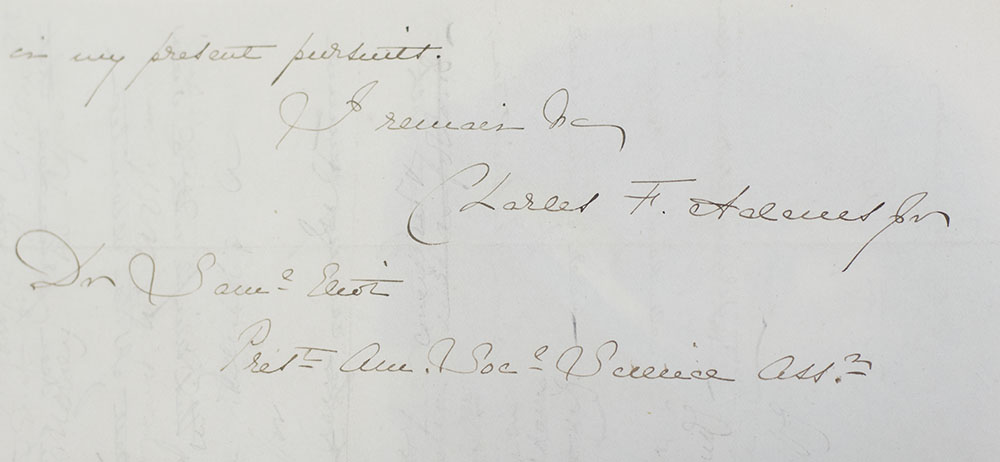 in my present pursuits.
I remain &c
Charles F. Adams Jr
Dr Saml Eliot
Prest Am. Socl Science Assn